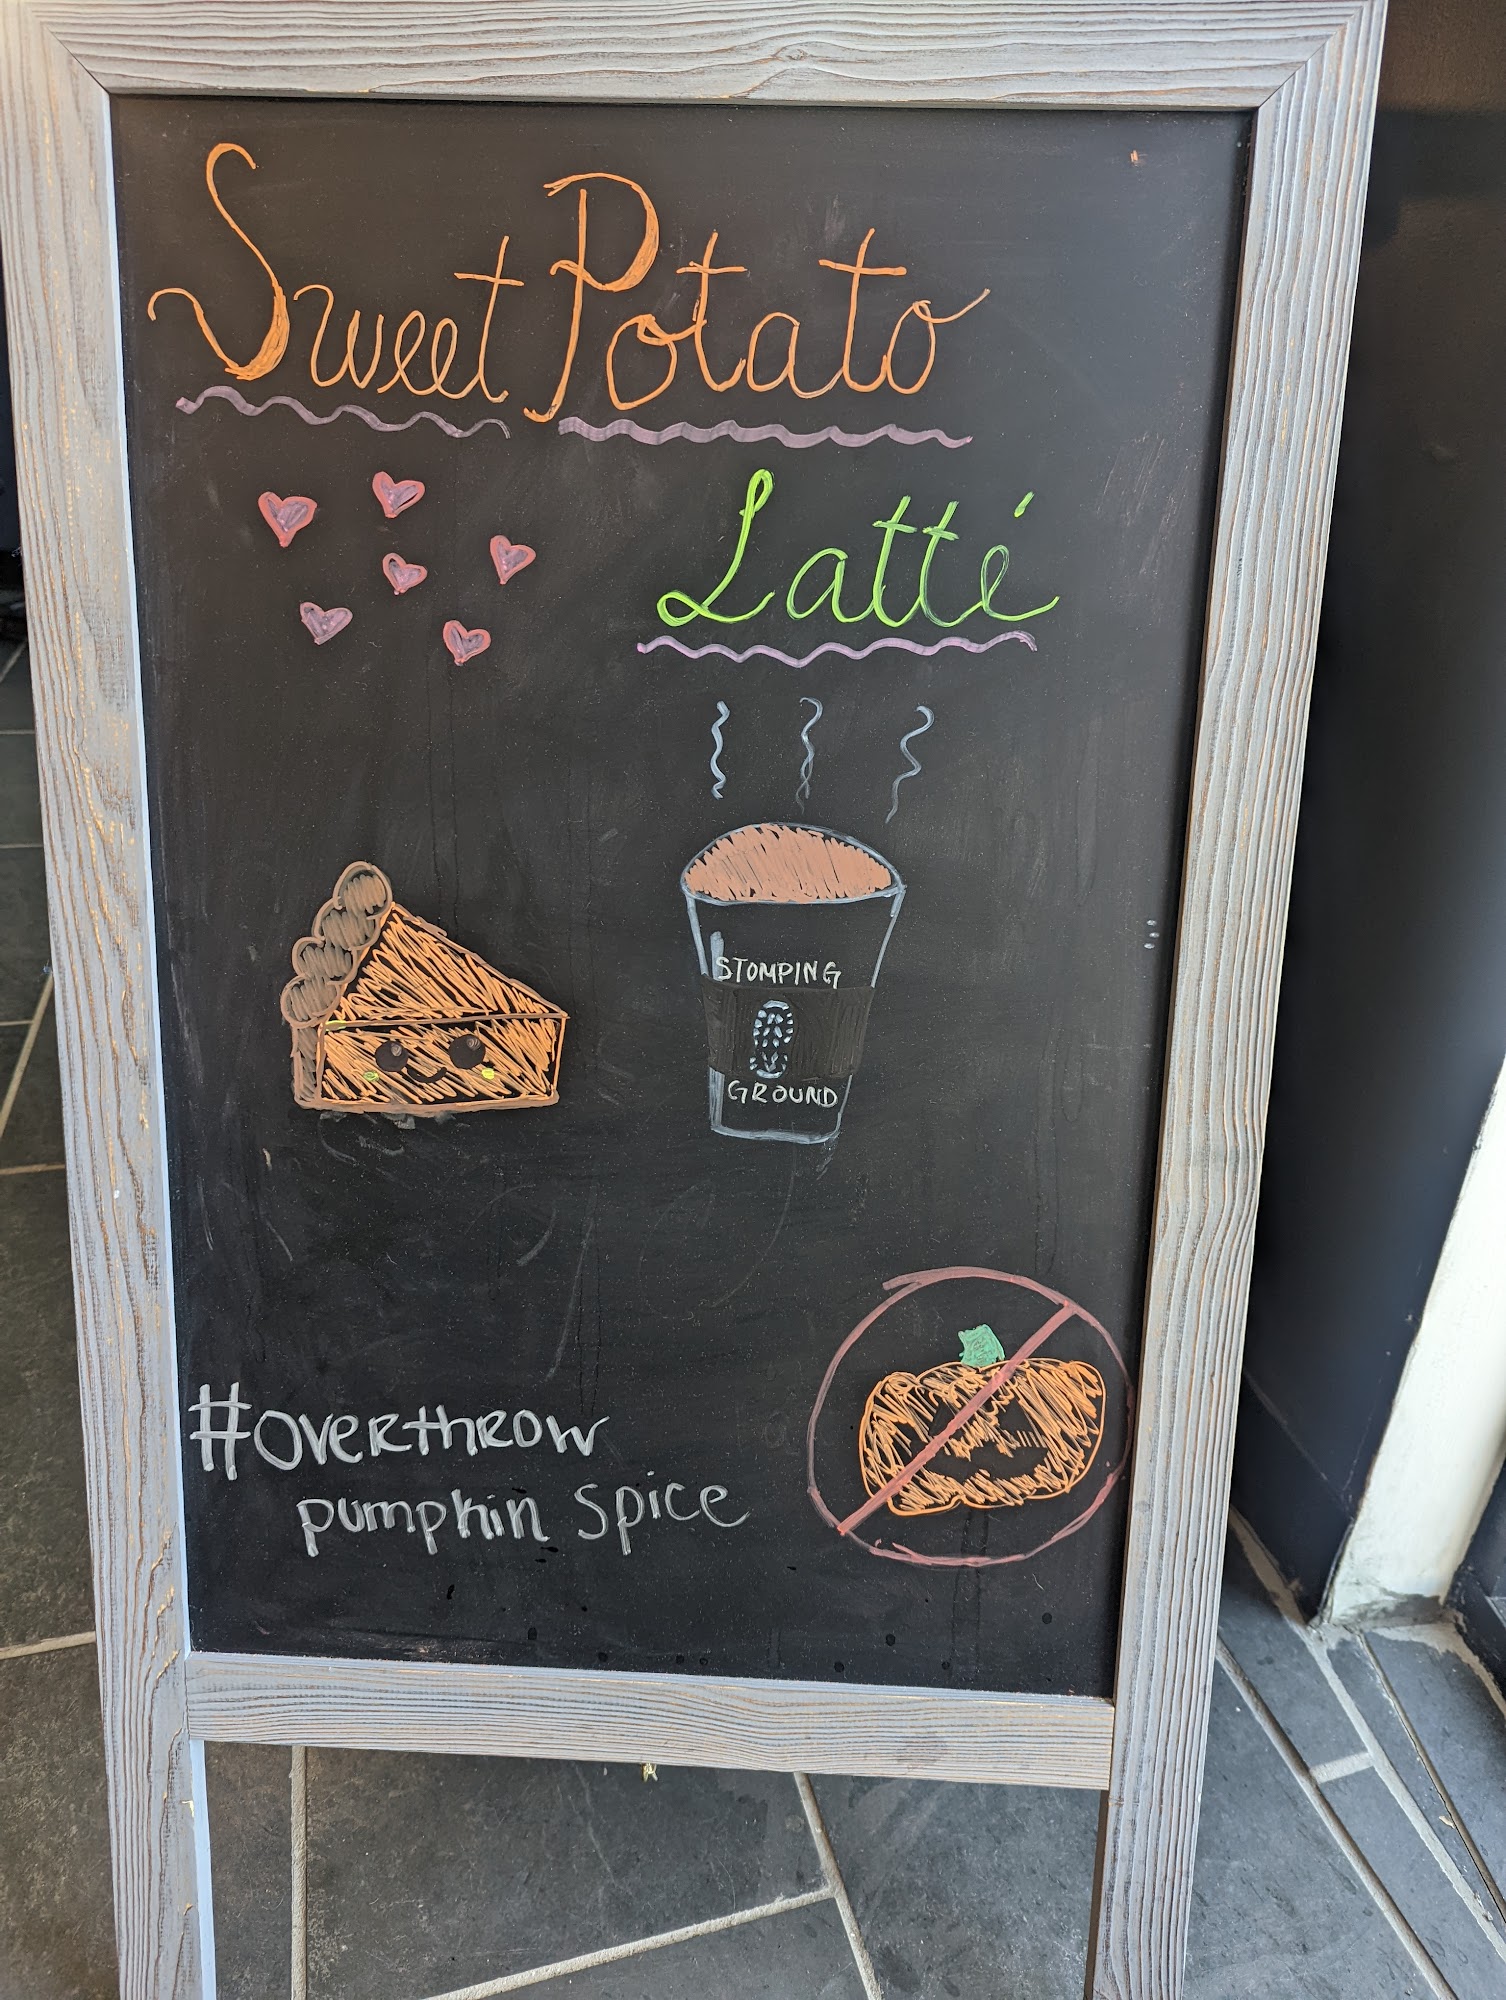 Sweet Potato
Latté
STOMPING
GROUND
#overthrow
pumpkin spice